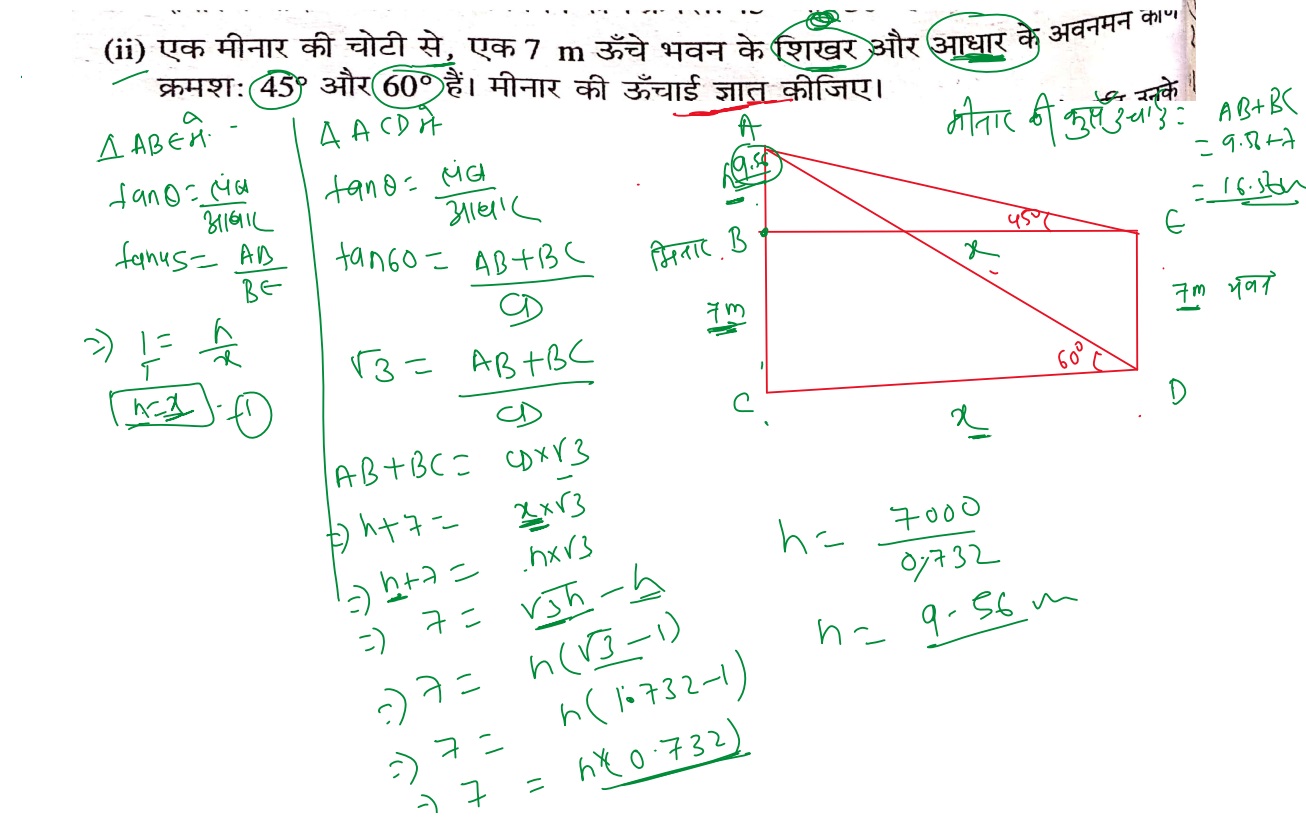 (ii) एक मीनार की चोटी से, एक 7 m ऊँचे भवन के शिखर और आधार के अवनमन कोण
क्रमशः 45° और 60° हैं। मीनार की ऊँचाई ज्ञात कीजिए।
उनके
Δ ABE में
tanθ = लंब / आधार
tan45 = AB / BE
⇒ 1/1 = h/x
h=x -①
Δ ACD में
tanθ = लंब / आधार
tan60 = AB+BC / CD
√3 = AB+BC / CD
AB+BC = CD×√3
⇒ h+7 = x×√3
⇒ h+7 = h×√3
⇒ 7 = √3h - h
⇒ 7 = h(√3-1)
⇒ 7 = h(1.732-1)
⇒ 7 = h×(0.732)
मीनार की कुल ऊंचाई = AB+BC
= 9.56+7
= 16.56m
A
9.56
h
मिनार B
45°
x
E
7m
7m भवन
60°
C
x
D
h = 7000 / 0.732
h = 9.56 m